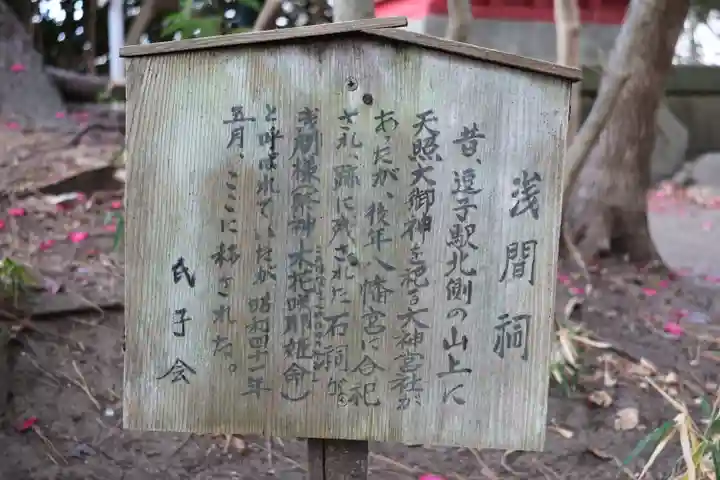 浅間祠
昔、逗子駅北側の山上に
天照大御神を祀る大神宮社が
あったが、後年八幡宮に合祀
され、跡に残された石祠が
浅間様(祭神木花咲耶姫命)
と呼ばれていたが昭和四十一年
五月、ここに移された。
氏子会